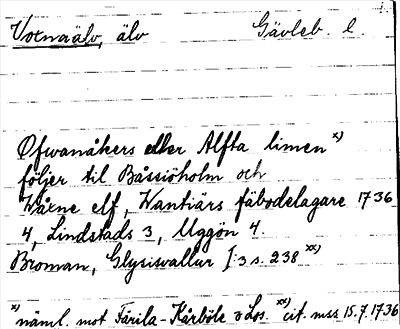 Voxnaälv, älv Gävleb. l.
Øfwanåkers eller Alfta limen x)
följer til Båssiöholm och
Wårne elf, Wantiärs fäbodelagare 1736
4, Lindstads 3, Uggön 4.
Broman, Glysisvallur I:3 s. 238 xx)
x) näml. mot Färila-Kårböle o Los. xx) cit. mss 15.7.1736